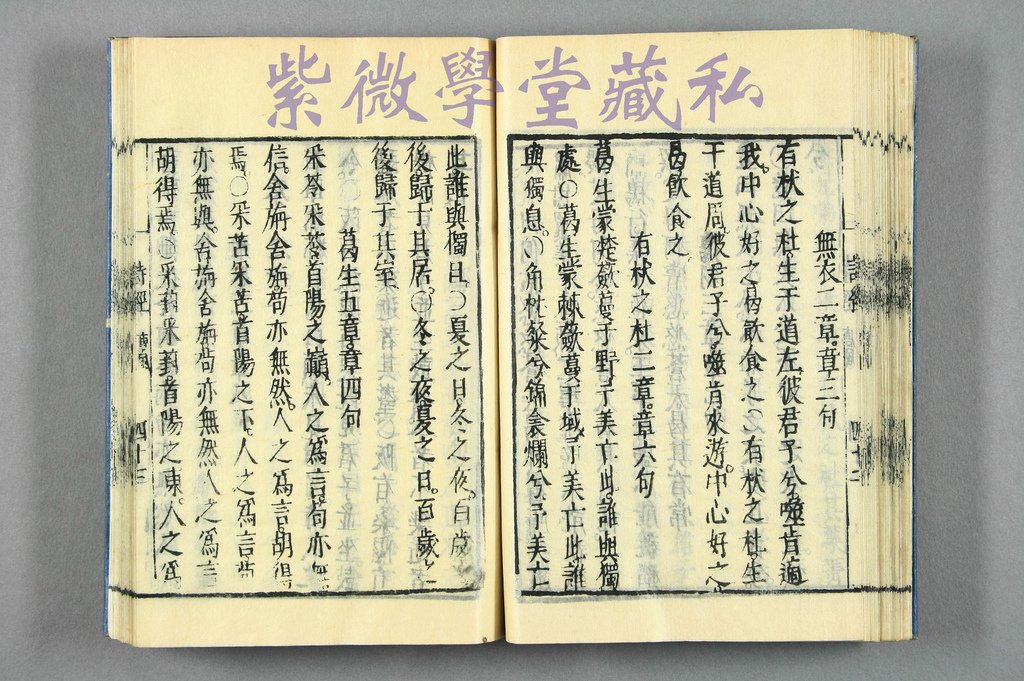 紫微學堂藏私
無衣二章章三句
有杕之杜生于道左彼君子兮噬肯適
我中心好之曷飲食之○有杕之杜生
于道周彼君子兮噬肯來遊中心好之
曷飲食之
有杕之杜二章章六句
葛生蒙楚蘞蔓于野予美亡此誰與獨
處○葛生蒙棘蘞蔓于域予美亡此誰
與獨息○角枕粲兮錦衾爛兮予美亡
詩經 唐風 四十二
此誰與獨旦○夏之日冬之夜百歲之
後歸于其居○冬之夜夏之日百歲之
後歸于其室
葛生五章章四句
采苓采苓首陽之巔人之爲言苟亦無
信舍旃舍旃苟亦無然人之爲言胡得
焉○采苦采苦首陽之下人之爲言苟
亦無與舍旃舍旃苟亦無然人之爲言
胡得焉○采葑采葑首陽之東人之爲
詩經 唐風 四十三